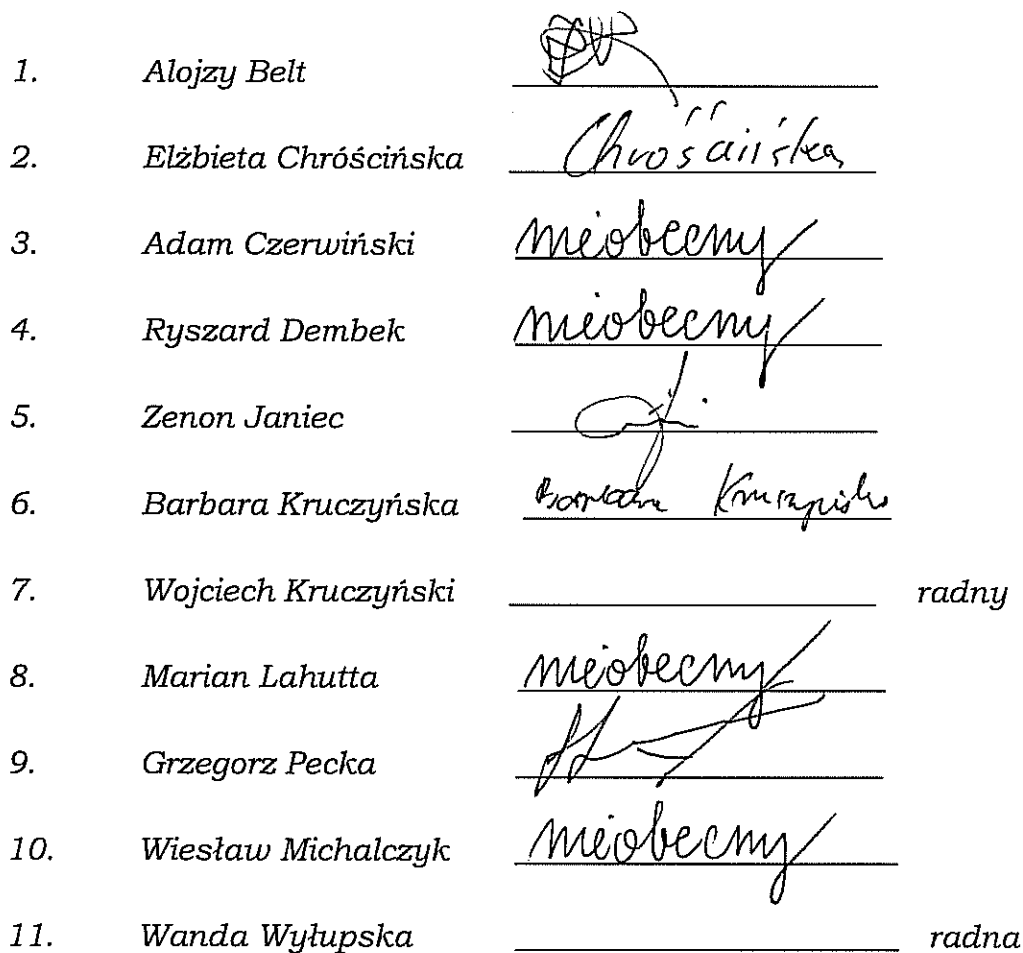 1. Alojzy Belt
2. Elżbieta Chróścińska Chróścińska
3. Adam Czerwiński nieobecny
4. Ryszard Dembek nieobecny
5. Zenon Janiec
6. Barbara Kruczyńska Barbara Kruczyńska
7. Wojciech Kruczyński radny
8. Marian Lahutta nieobecny
9. Grzegorz Pecka
10. Wiesław Michalczyk nieobecny
11. Wanda Wyłupska radna